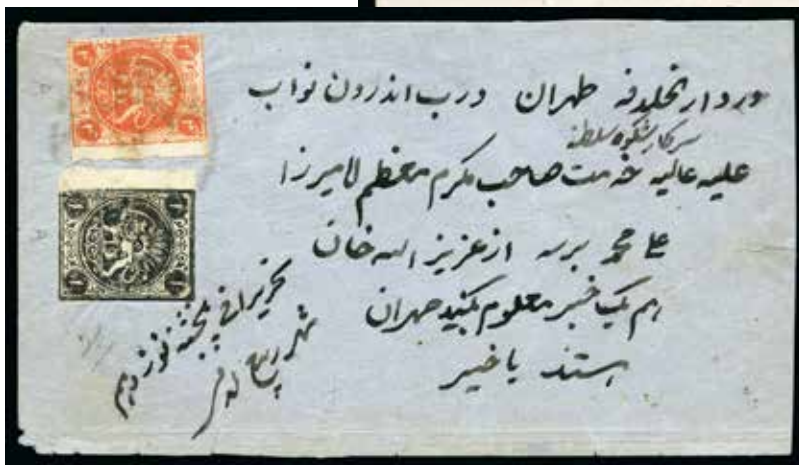 در دارالخلافه طهران درب اندرون نواب
سرکار شکوه سلطنه
علیه عالیه خدمت صاحب مکرم معظم میرزا
علی محمد برسد از عزیز الله خان
هم یک خبر معلوم بکنید طهران
هستند یا خیر
تحریرا فی پنجشنبه نوزدهم
شهر ربیع